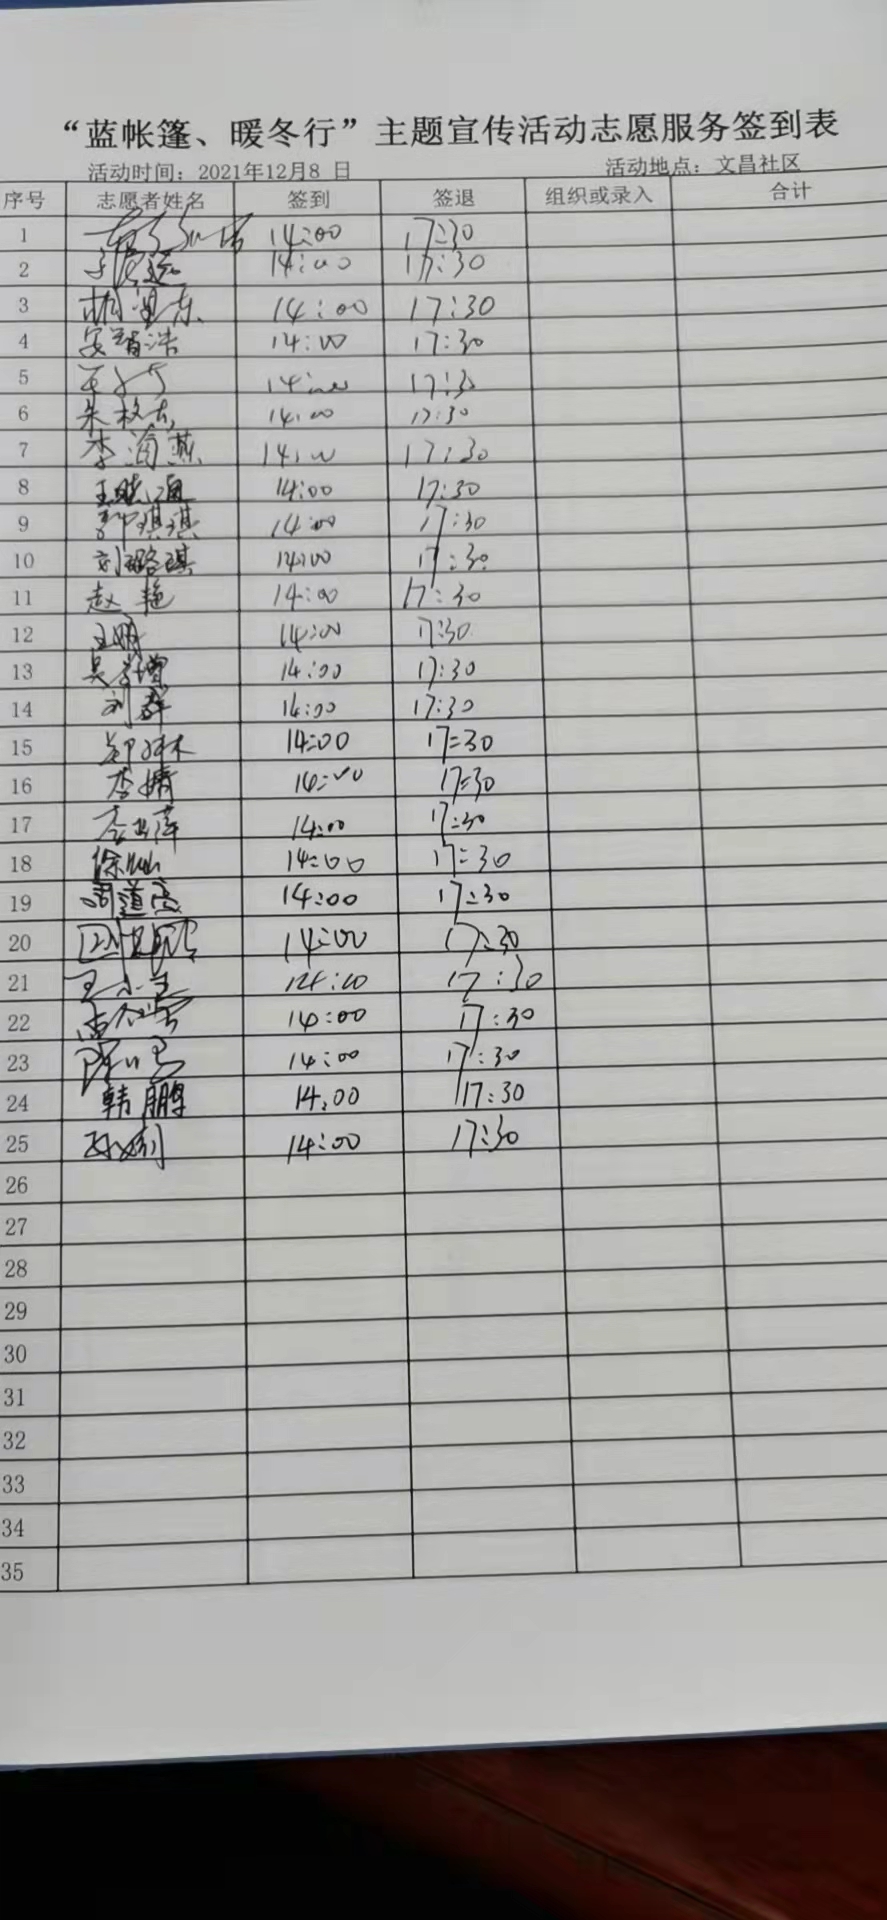 “蓝帐篷、暖冬行”主题宣传活动志愿服务签到表
活动时间：2021年12月8 日 活动地点：文昌社区
序号 志愿者姓名 签到 签退 组织或录入 合计
1 14:00 17:30
2 14:00 17:30
3 14:00 17:30
4 安智浩 14:00 17:30
5 14:00 17:30
6 14:00 17:30
7 李海燕 14:00 17:30
8 14:00 17:30
9 郭琪琪 14:00 17:30
10 刘璐琪 14:00 17:30
11 赵艳 14:00 17:30
12 王鹏 14:00 17:30
13 14:00 17:30
14 刘群 14:00 17:30
15 14:00 17:30
16 李婧 14:00 17:30
17 14:00 17:30
18 14:00 17:30
19 周道亮 14:00 17:30
20 14:00 17:30
21 14:00 17:30
22 14:00 17:30
23 14:00 17:30
24 韩鹏 14:00 17:30
25 14:00 17:30
26
27
28
29
30
31
32
33
34
35